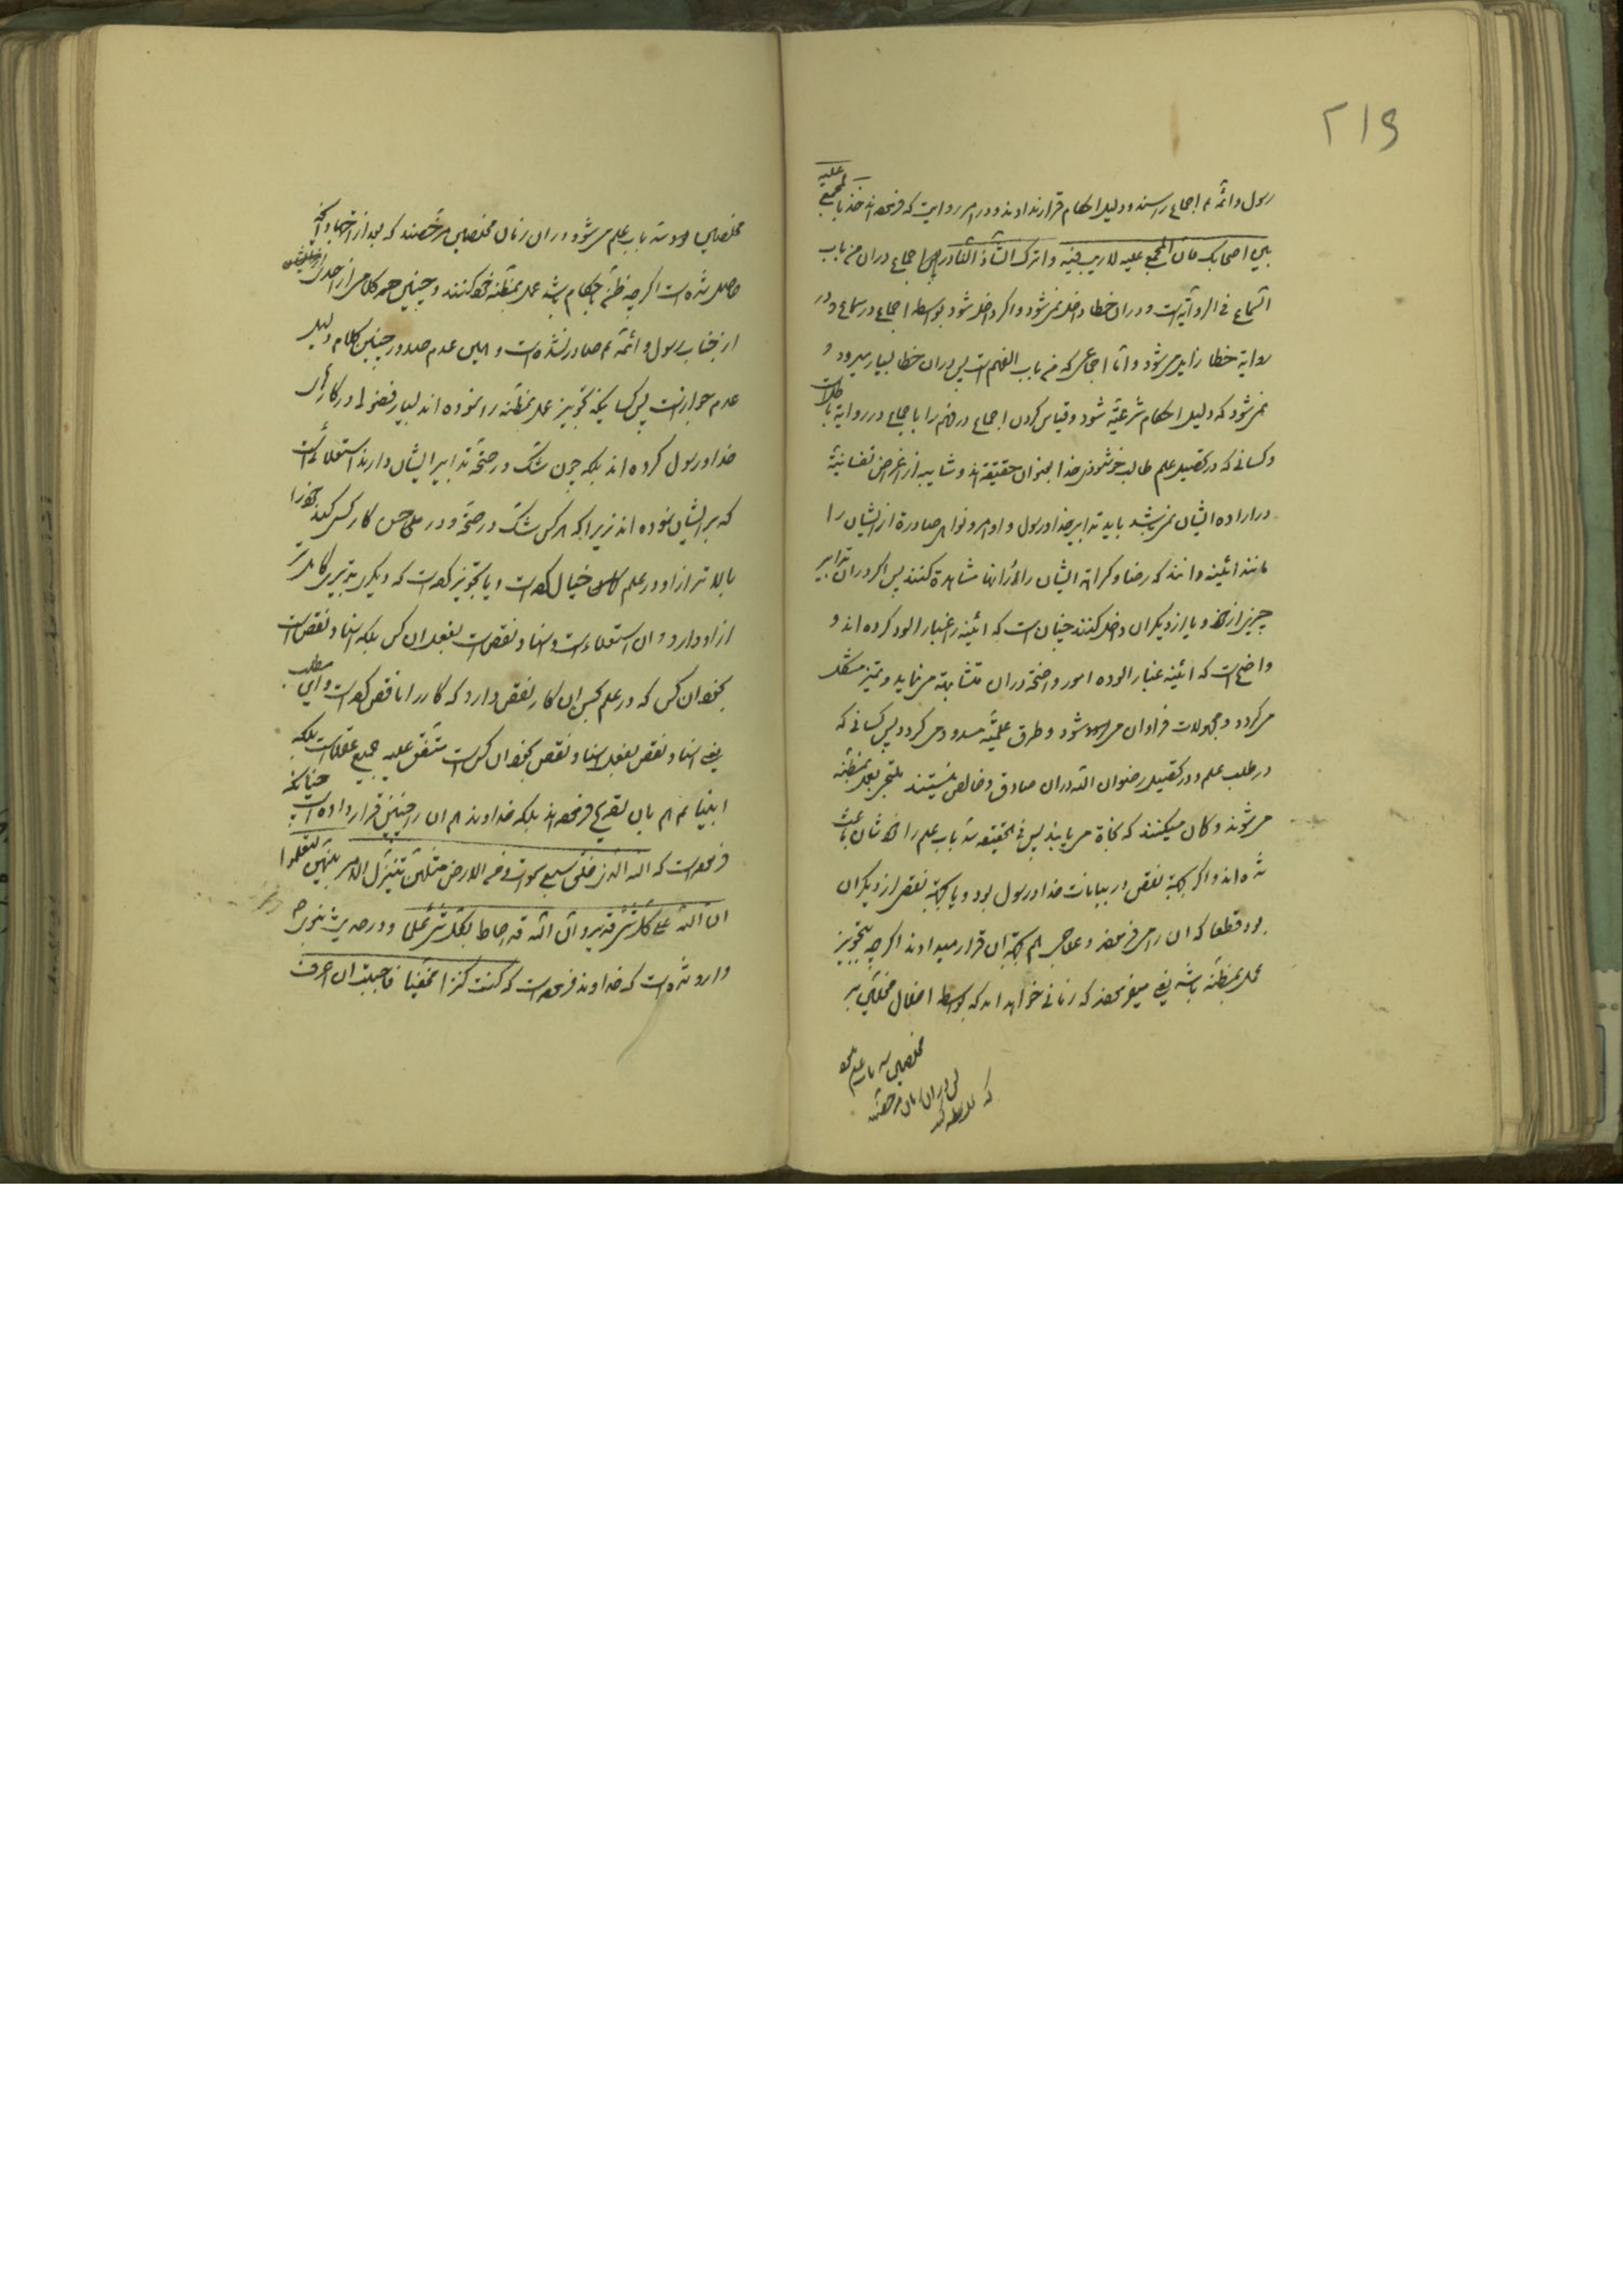 ۲۱۹
رسول و ائمه ع اجماع را سند و دلیل احکام قرار نداده‌اند و در امر روایت که فرموده‌اند خذ بالمجمع علیه
بین اصحابک فان المجمع علیه لا ریب فیه و اترک الشاذ النادر پس اجماع در آن من باب
السماع فی الروایة است و در آن خطا داخل نمیشود و اگر داخل شود بواسطه اجماع در سماع و در
روایة خطا زایل میشود و اما اجماعی که من باب الفهم است پس در آن خطا بسیار میرود و
نمیشود که دلیل احکام شرعیّه شود و قیاس کردن اجماع در فهم را با اجماع در روایة باطل است
و کسانی که در تحصیل علم طالب خوشنودی خدا بعنوان حقیقة‌اند و شایبه از اغراض نفسانیّة
در اراده ایشان نمیباشد باید تدابیر خدا و رسول و اوامر و نواهی صادرة از ایشان را
مانند آئینه دانند که رضا و کراهة ایشان را در آنها مشاهدة کنند پس اگر در آن تدابیر
چیزی از خود و یا از دیگران داخل کنند چنان است که آئینه را غبار آلود کرده‌اند و
واضح است که آئینه غبار آلوده امور واضحة در آن متشابهة مینماید و تمیز مشکل
میگردد و مجهولات فراوان میشود و طرق علمیّه مسدود میگردد پس کسانی که
در طلب علم و در تحصیل رضوان الله در آن صادق و خالص نیستند ملتجی بعمل بمظنّه
میشوند و گمان میکنند که نجاة مییابند پس فی الحقیقه سدّ باب علم را خودشان باعث
شده‌اند و اگر بجهة نقص در بیانات خدا و رسول بود و یا بجهة نقص از دیگران
بود قطعا که آن را میفرمودند و علاجی هم بجهة آن قرار میدادند اگر چه بتجویز
عمل بمظنّه باشد یعنی میفرمودند که زمانی خواهد آمد که بواسطه اضلال مضلّین بر
مخلصین سد باب علم میشود و در آن زمان مخلصین مرخّصند که بعد از اجتهاد آنچه
حاصل شده است اگر چه ظن باحکام باشد عمل بمظنّه خود کنند و چنین کلامی از احدی
از جناب رسول و ائمّه ع صادر نشده است و همین عدم صدور چنین کلام دلیل
عدم جواز است پس کسانیکه تجویز عمل بمظنّه را نموده‌اند بسیار فضولی در کارهای
خدا و رسول کرده‌اند بلکه چون شک در صحّة تدابیر ایشان دارند استعلائی است
که بر ایشان نموده‌اند زیرا که هر کس شک در صحّة و در حسن کار کسی کند خود را
بالاتر از او در علم خیال کرده است و یا تجویز کرده است که دیگری تدبیری کاملتر
از او دارد و آن استعلاء است و اسناد نقص است بفعل آن کس بلکه اسناد نقص است
بخود آن کس که در علم بحسن آن کار نقص دارد که کار را ناقص کرده است و این مطلب
یعنی اسناد نقص بفعل اسناد نقص بخود آن کس است متفق علیه جمیع عقلا است بلکه
انبیا ع هم بآن تصریح فرموده‌اند بلکه خداوند هم آن را چنین قرار داده است چنانکه
فرموده است که الله الذی خلق سبع سموات و من الارض مثلهن یتنزل الامر بینهن لتعلموا
ان الله علی کل شیء قدیر و ان الله قد احاط بکل شیء علما و در حدیث نبوی ص
وارد شده است که خداوند فرموده است که کنت کنزا مخفیا فاحببت ان اعرف